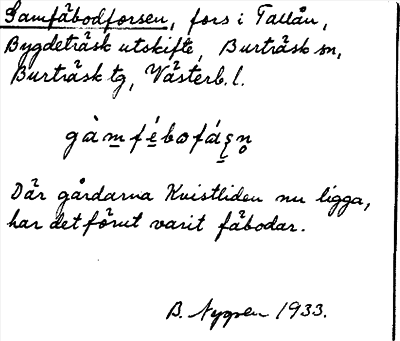 Gamfäbodforsen, fors i Tallån,
Bygdeträsk utskifte, Burträsk sn,
Burträsk tg, Västerb. l.
gàm fébofáʂn̥
Där gårdarna Kvistliden nu ligga,
har det förut varit fäbodar.
B. 1933.